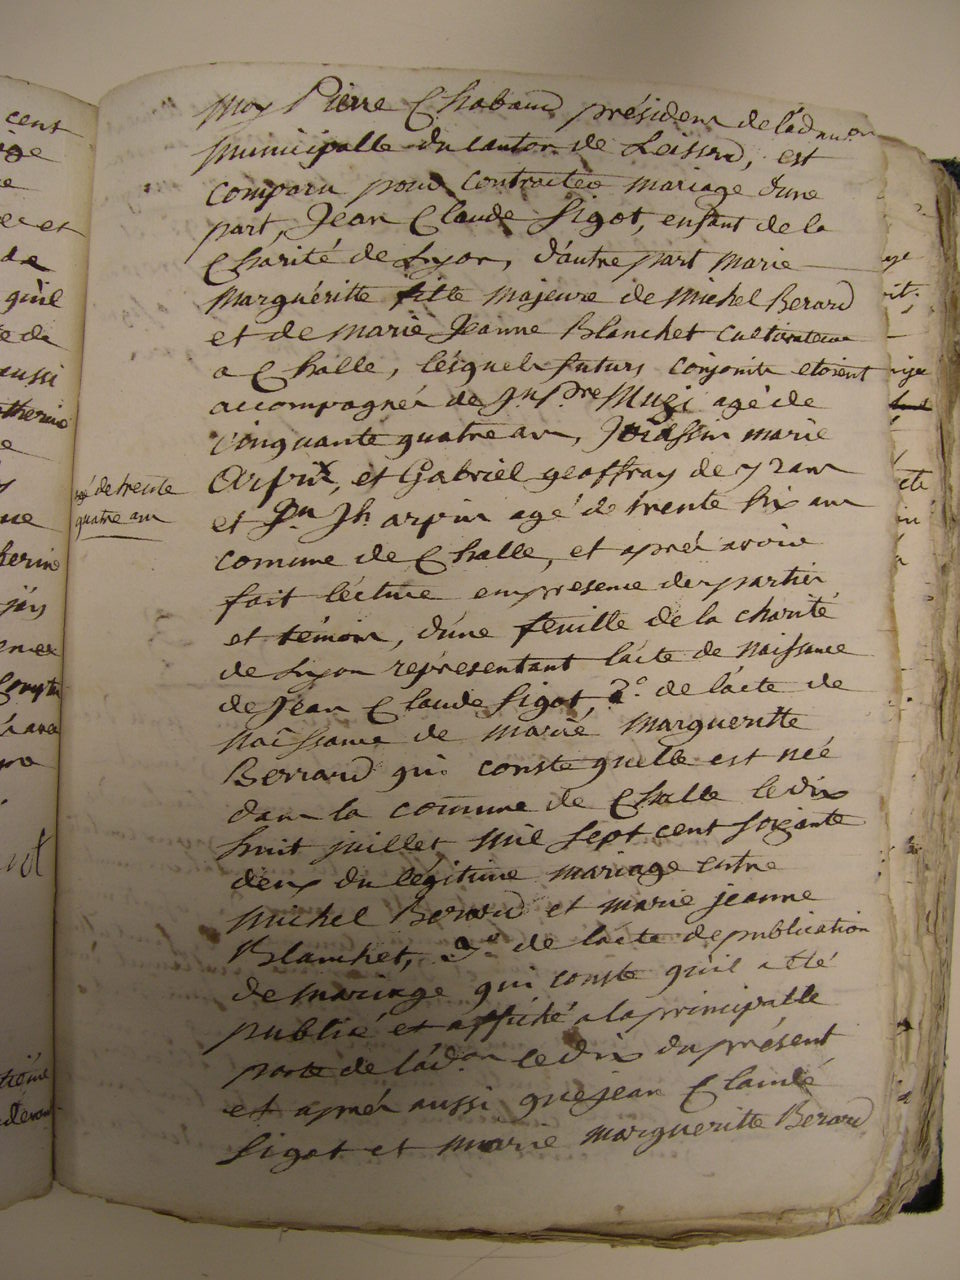 moy Pierre Chabaud président de l'ad.on
municipalle du canton de Leissard, est
comparu pour contracter mariage d'une
part, Jean Claude Sigot, enfant de la
Charité de Lyon, d'autre part marie
marguéritte fille majeure de Michel Berard
et de marie Jeanne Blanchet cultivateur
a Challe, lésquels futurs conjoints etoient
accompagnés de Jn pre Mugi agé de
cinquante quatre ans, marie
Arpin, et Gabriel geoffray de 72 ans
agé de trente
quatre ans
et Jn Jh arpin agé de trente six ans
comune de Challe, et aprés avoir
fait lécture en presence des parties
et témoins, d'une feuille de la charité
de Lyon représentant lácte de naissance
de Jean Claude Sigot, 2.° de lácte de
naissance de marie margueritte
Berrard qui conste quelle est née
dans la comune de Challe le dix
huit juillet mil sept cent soixante
deux du légitime mariage entre
michel Berard et marie jeanne
Blanchet, 3.° de lacte de publication
de mariage qui conste quil a été
publié et affiché a la principalle
porte de lád.on le dix du présent
et aprés aussi que jean Claude
Sigot et marie margueritte Berard